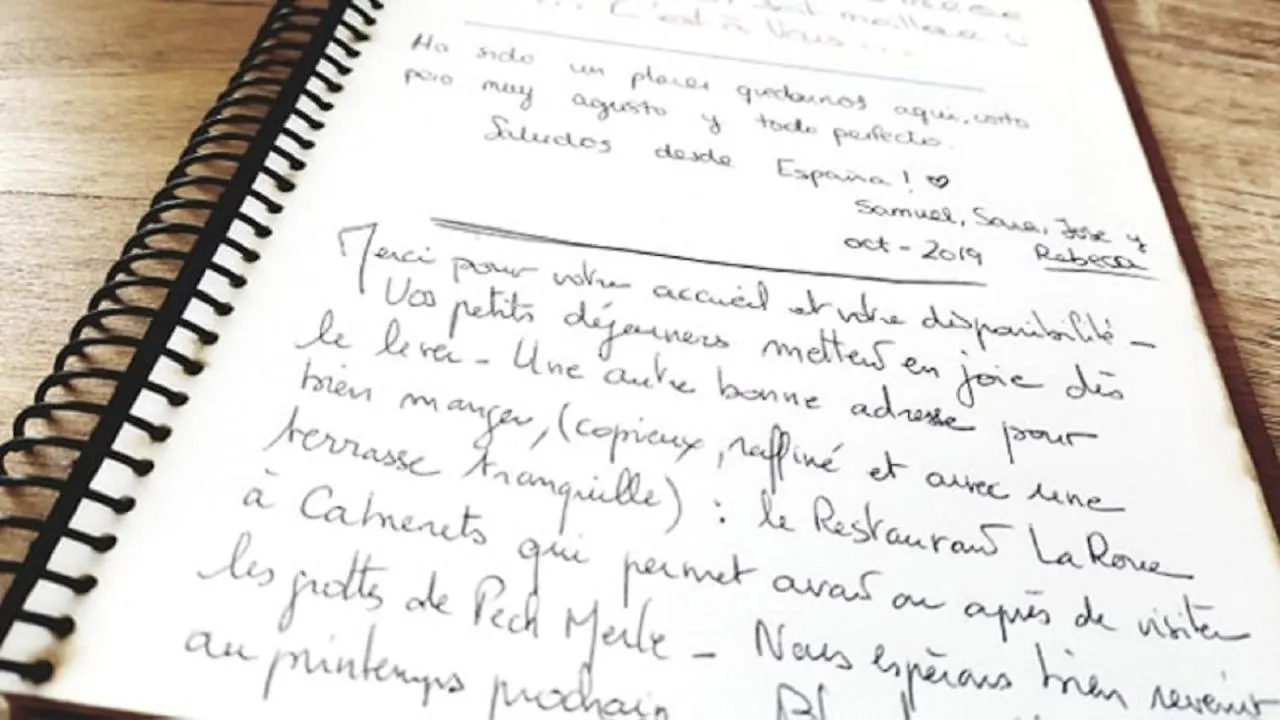 sont meilleurs
... C'est à Vous ...
Ha sido un placer quedarnos aqui, corto
pero muy agusto y todo perfecto.
Saludos desde España! ♡
Samuel, Sara, Jose y
oct - 2019 Rebeca
Merci pour votre accueil et votre disponibilité -
Vos petits déjeuners mettent en joie dès
le lever - Une autre bonne adresse pour
bien manger, (copieux, raffiné et avec une
terrasse tranquille) : le Restaurant La Roue
à Cabrerets qui permet avant ou après de visiter
les grottes de Pech Merle - Nous espérons bien revenir
au printemps prochain